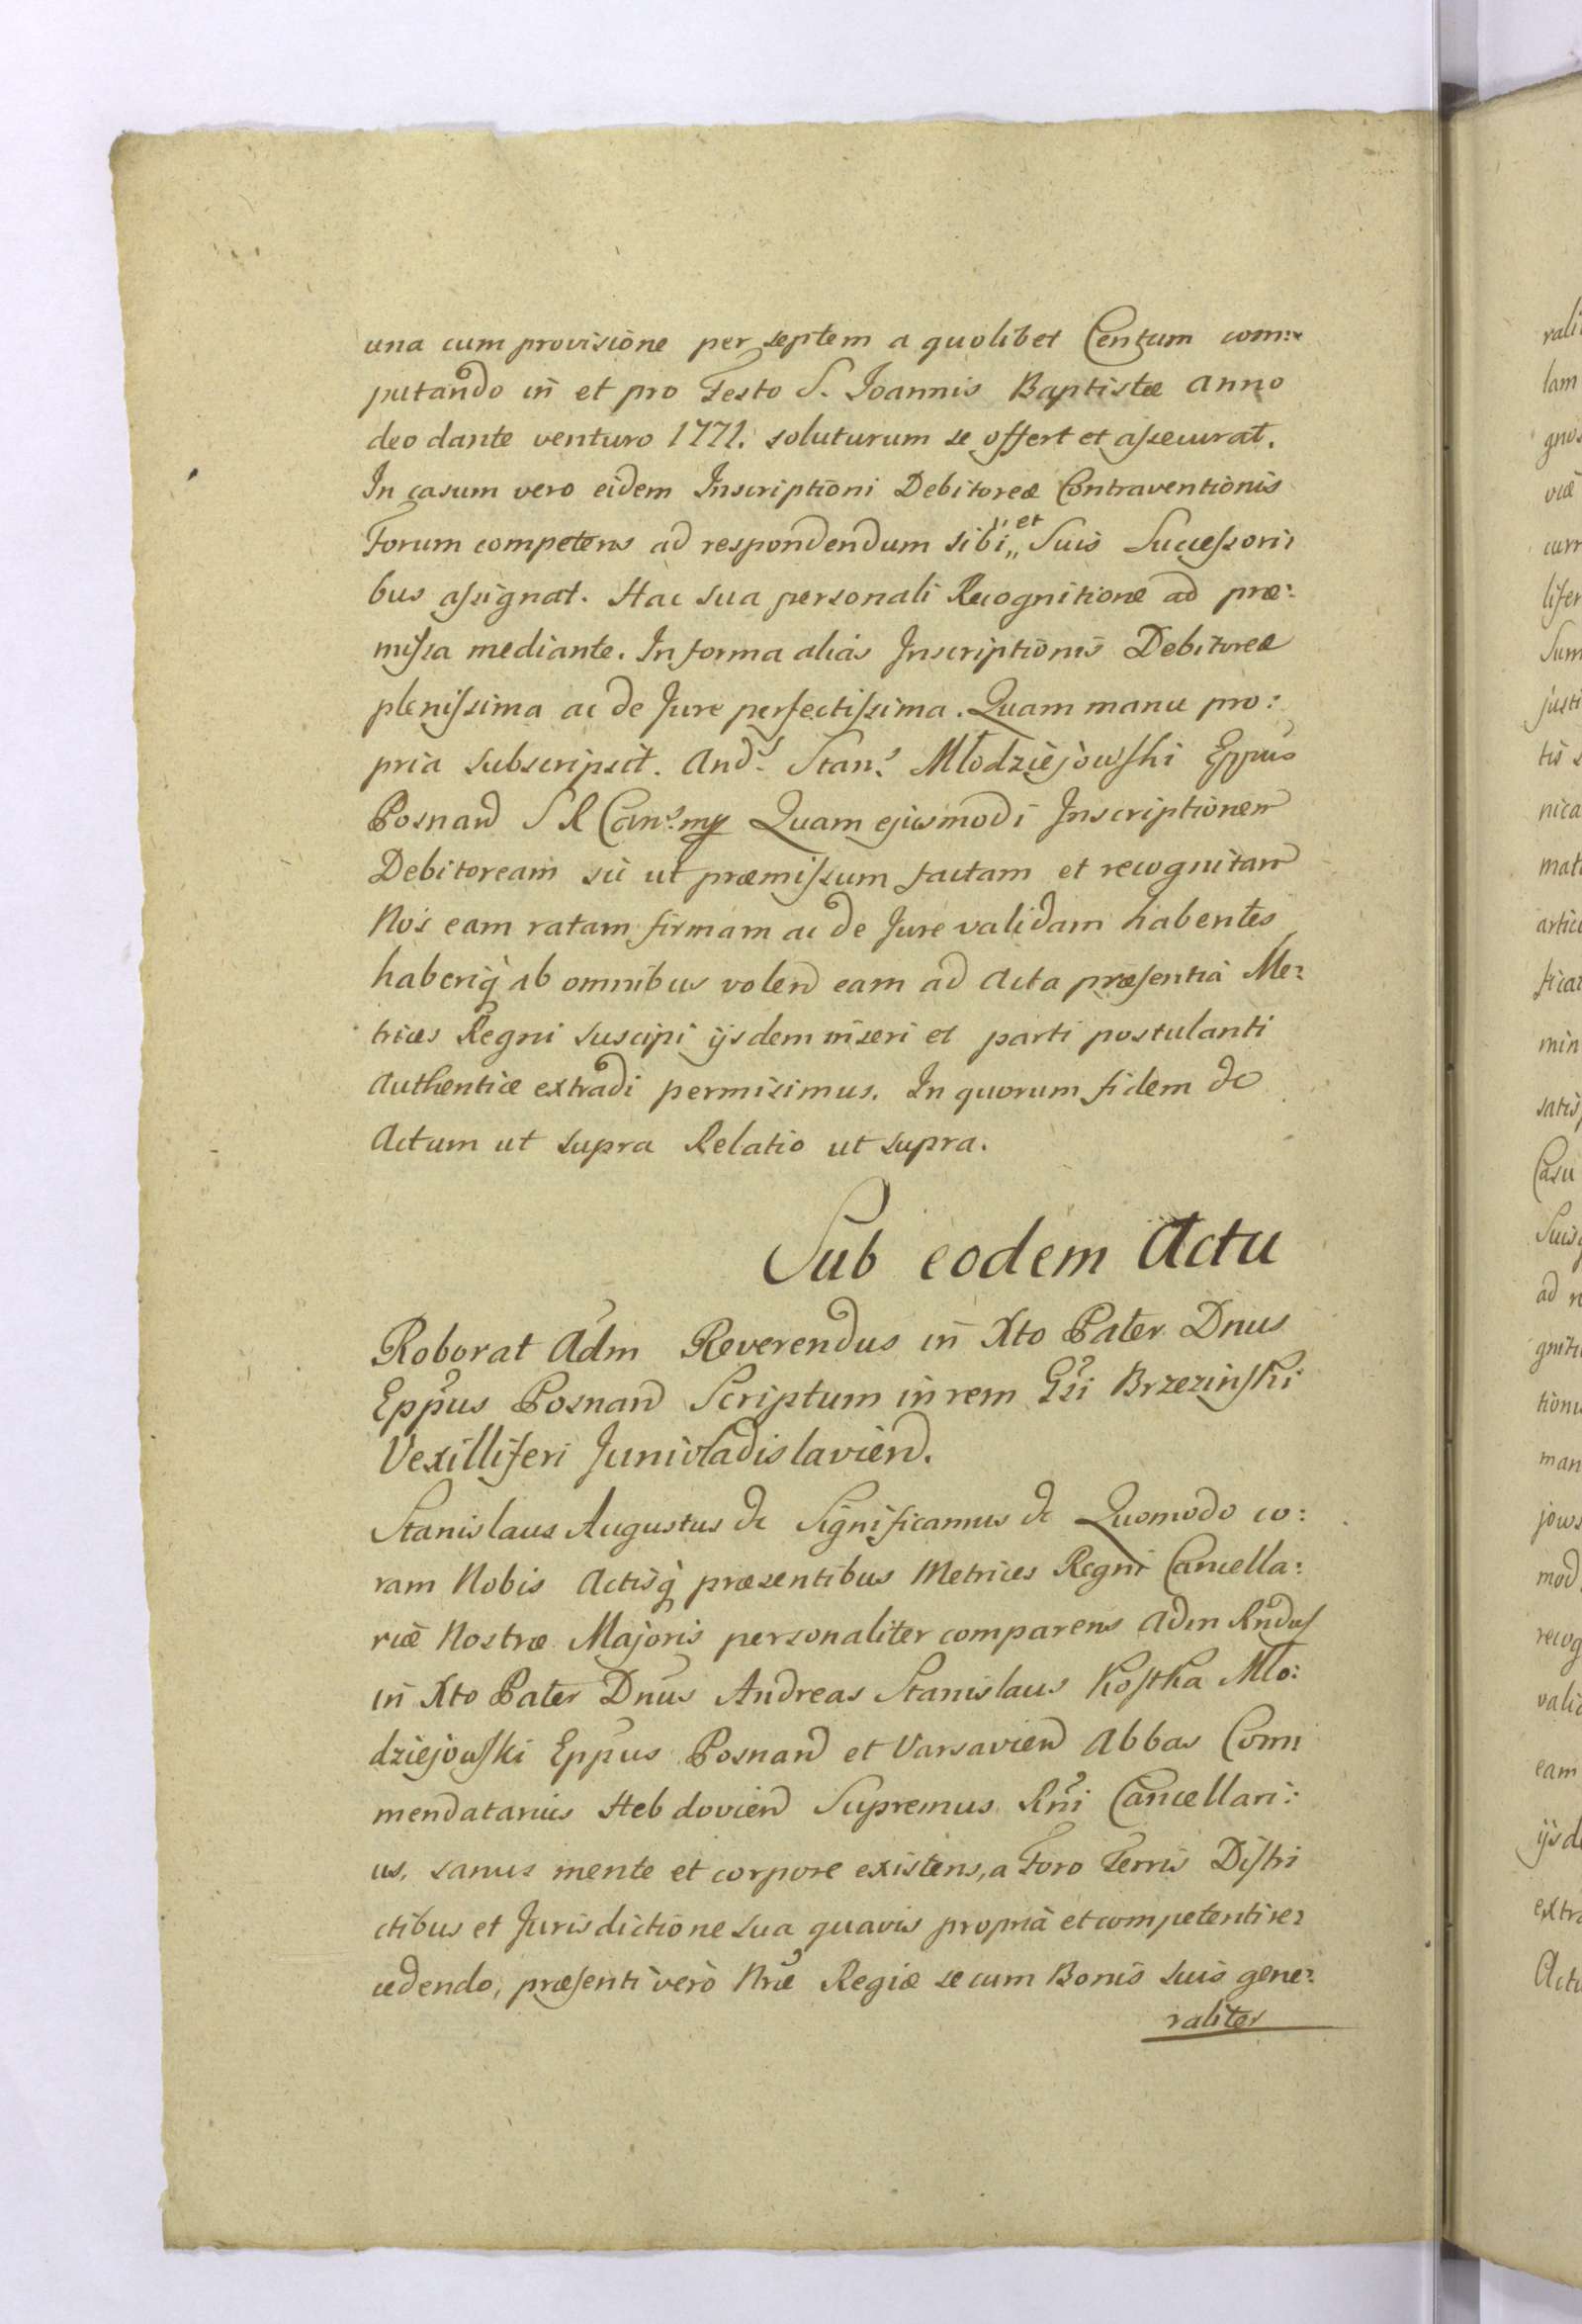 una cum provisione per septem a quolibet Centum com:
putando in et pro Festo S. Joannis Baptistæ anno
deo dante venturo 1771. soluturum se offert et assecurat.
In casum vero eidem Inscriptioni Debitoreæ Contraventionis
Forum competens ad respondendum sibi,, et Suis Successori:
bus assignat. Hac sua personali Recognitione ad præ:
missa mediante. In forma alias Inscriptionis Debitoreæ
plenissima ac de Jure perfectissima. Quam manu pro:
pria subscripsit. And.s Stan.s Młodziejowski Eppus
Posnan S R Can.s mp Quam ejusmodi Inscriptionem
Debitoream sic ut præmissum factam et recognitam
Nos eam ratam firmam ac de Jure validam habentes
haberiq̃ ab omnibus volen eam ad Acta præsentia Me:
trices Regni suscipi ijsdem inseri et parti postulanti
Authentice extradi permisimus. In quorum fidem &c
Actum ut supra Relatio ut supra.
Sub eodem Actu
Roborat Adm Reverendus in Xto Pater Dnus
Eppus Posnan Scriptum in rem Gsi Brzezinski
Vexilliferi Junivladislavien.
Stanislaus Augustus &c Significamus &c Quomodo co:
ram Nobis Actisq̃ præsentibus Metrices Regni Cancella:
riæ Nostræ Majoris personaliter comparens Adm Rndus
in Xto Pater Dnus Andreas Stanislaus Kostka Mło:
dziejowski Eppus Posnan et Varsavien Abbas Com:
mendatarius Hebdovien Supremus Rni Cancellari:
us, sanus mente et corpore existens, a Foro Terris Distri
ctibus et Jurisdictione sua quavis propria et competenti re:
cedendo, præsenti verò Nræ Regiæ se cum Bonis suis gene:
raliter